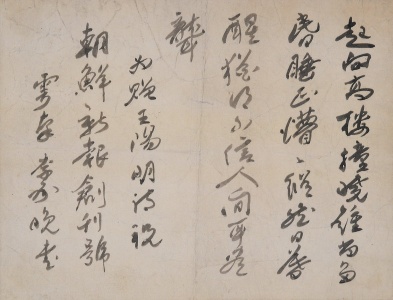 起向高樓撞曉鍾尚多
昏睡正懵〻縱然日暮
醒猶得不信人間耳盡
聾
王陽明詩祝
朝鮮新報創刊號
雩南 李承晚書